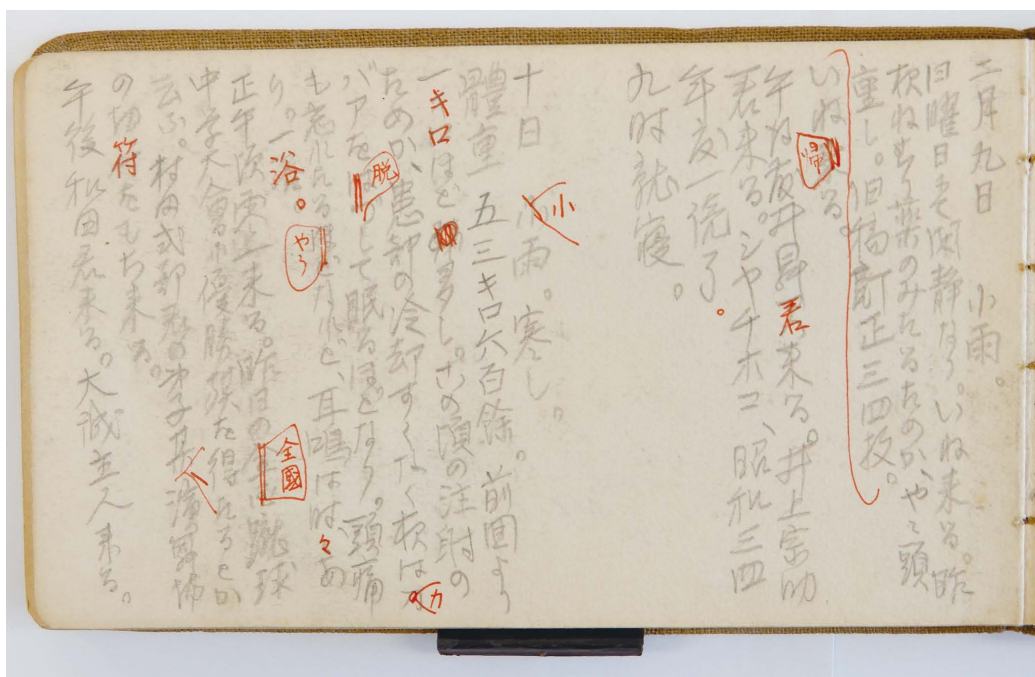 二月九日 小雨。
日曜日とて閑静なり。いね来る。昨
夜ねむり薬のみたるためか、やゝ頭
重し。旧稿訂正三四枚。
いね帰る。
午後友井昇君来る。井上宗助
君来る。シヤチホコ、昭和三四
年度一読了。
九時就寝。
十日 小雨。寒し。
體重 五三キロ六百餘。前回より
一キロほど多し。この頃の注射の
ためか、患部の冷却すくなく夜は カ
バアを脱して眠るほどなり。頭痛
も忘れたるやうなれど、耳鳴は時々あ
り。一浴。
正午頃 来る。昨日の全國蹴球
中学大會に優勝旗を得たりとか
云ふ。村田式部君の弟子其
の切符をもち来る。
午後和田君来る。大誠主人来る。